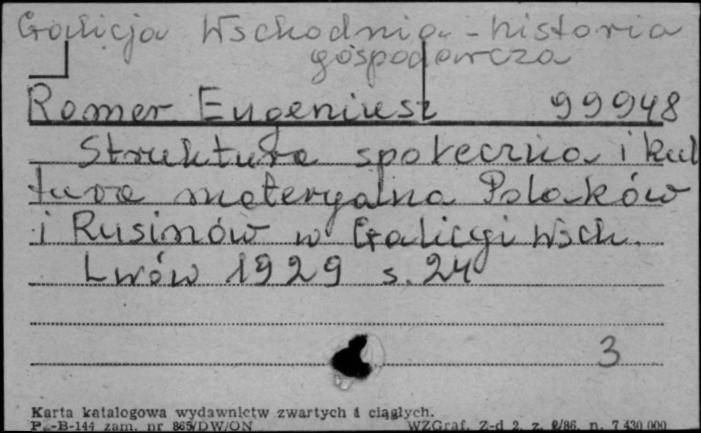 Galicja Wschodnia - historia
gospodarcza
Romer Eugeniusz 99948
Struktura społeczna i kul
tura materyalna Polaków
i Rusinów w Galicyi Wsch.
Lwów 1929 s. 24
3
Karta katalogowa wydawnictw zwartych i ciągłych.
Pu-B-144 zam. nr 865/DW/ON WZGraf. Z-d 2, z. 2/86, n. 7 430 000